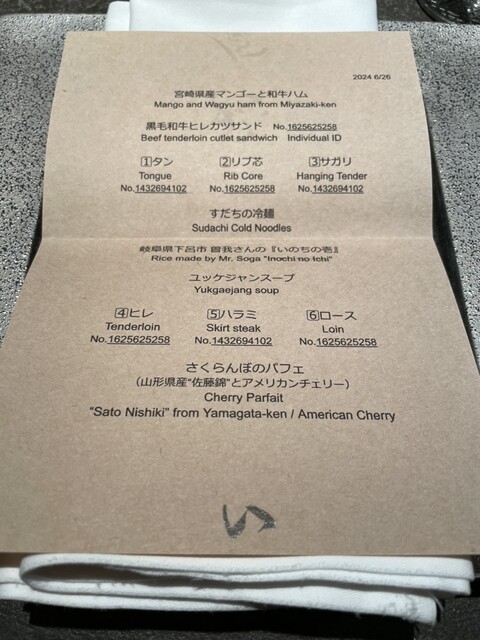 2024 6/26
宮崎県産マンゴーと和牛ハム
Mango and Wagyu ham from Miyazaki-ken
黒毛和牛ヒレカツサンド No.1625625258
Beef tenderloin cutlet sandwich Individual ID
1タン 2リブ芯 3サガリ
Tongue Rib Core Hanging Tender
No.1432694102 No.1625625258 No.1432694102
すだちの冷麺
Sudachi Cold Noodles
岐阜県下呂市 曽我さんの『いのちの壱』
Rice made by Mr. Soga "Inochi no Ichi"
ユッケジャンスープ
Yukgaejang soup
4ヒレ 5ハラミ 6ロース
Tenderloin Skirt steak Loin
No.1625625258 No.1432694102 No.1625625258
さくらんぼのパフェ
（山形県産“佐藤錦”とアメリカンチェリー）
Cherry Parfait
“Sato Nishiki” from Yamagata-ken / American Cherry
い